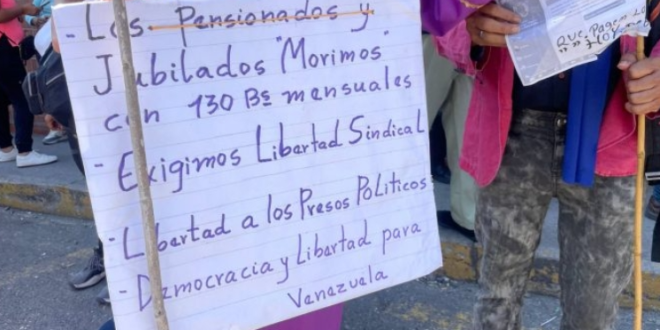 - Los Pensionados y
Jubilados "Morimos"
con 130 Bs mensuales
- Exigimos Libertad Sindical
- Libertad a los Presos Políticos
- Democracia y Libertad para
Venezuela
que Pagan Lo